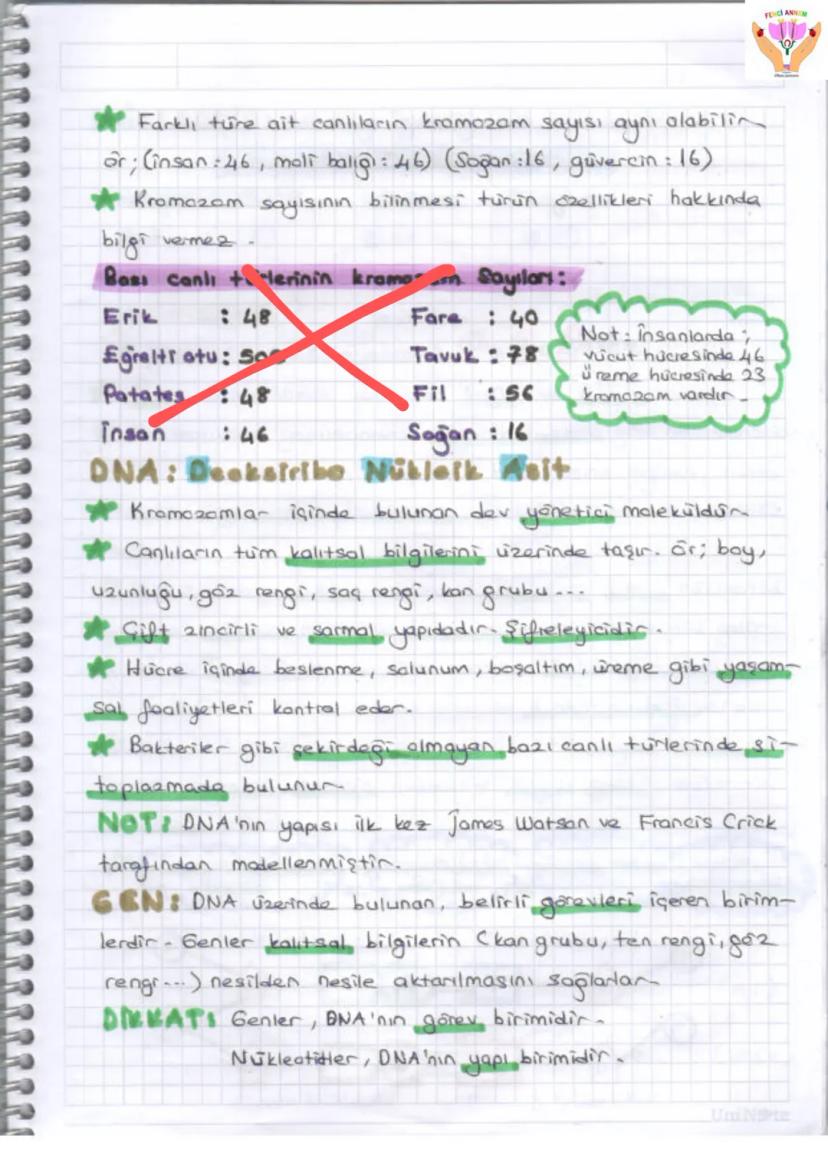 FENCİ ANNEM
Farklı türe ait canlıların kromozom sayısı aynı olabilir
ör; (insan: 46, moli balığı: 46) (Soğan: 16, güvercin: 16)
Kromozom sayısının bilinmesi türün özellikleri hakkında
bilgi vermez.
Bazı canlı türlerinin kromozom Sayıları:
Erik : 48 Fare : 40
Eğrelti otu: 500 Tavuk : 78
Patates : 48 Fil : 56
İnsan : 46 Soğan : 16
Not: İnsanlarda;
vücut hücresinde 46
üreme hücresinde 23
kromozom vardır.
DNA: Deoksiribo Nükleik Asit
Kromozomlar içinde bulunan dev yönetici moleküldür.
Canlıların tüm kalıtsal bilgilerini üzerinde taşır. ör; boy,
uzunluğu, göz rengi, saç rengi, kan grubu...
Çift zincirli ve sarmal yapıdadır. Şifreleyicidir.
Hücre içinde beslenme, solunum, boşaltım, üreme gibi yaşam-
sal faaliyetleri kontrol eder.
Bakteriler gibi çekirdeği olmayan bazı canlı türlerinde si-
toplazmada bulunur.
NOT: DNA'nın yapısı ilk kez James Watson ve Francis Crick
tarafından modellenmiştir.
GEN: DNA üzerinde bulunan, belirli görevleri içeren birim-
lerdir. Genler kalıtsal bilgilerin (kan grubu, ten rengi, göz
rengi...) nesilden nesile aktarılmasını sağlarlar.
DİKKAT: Genler, DNA'nın görev birimidir.
Nükleotitler, DNA'nın yapı birimidir.
UniNote